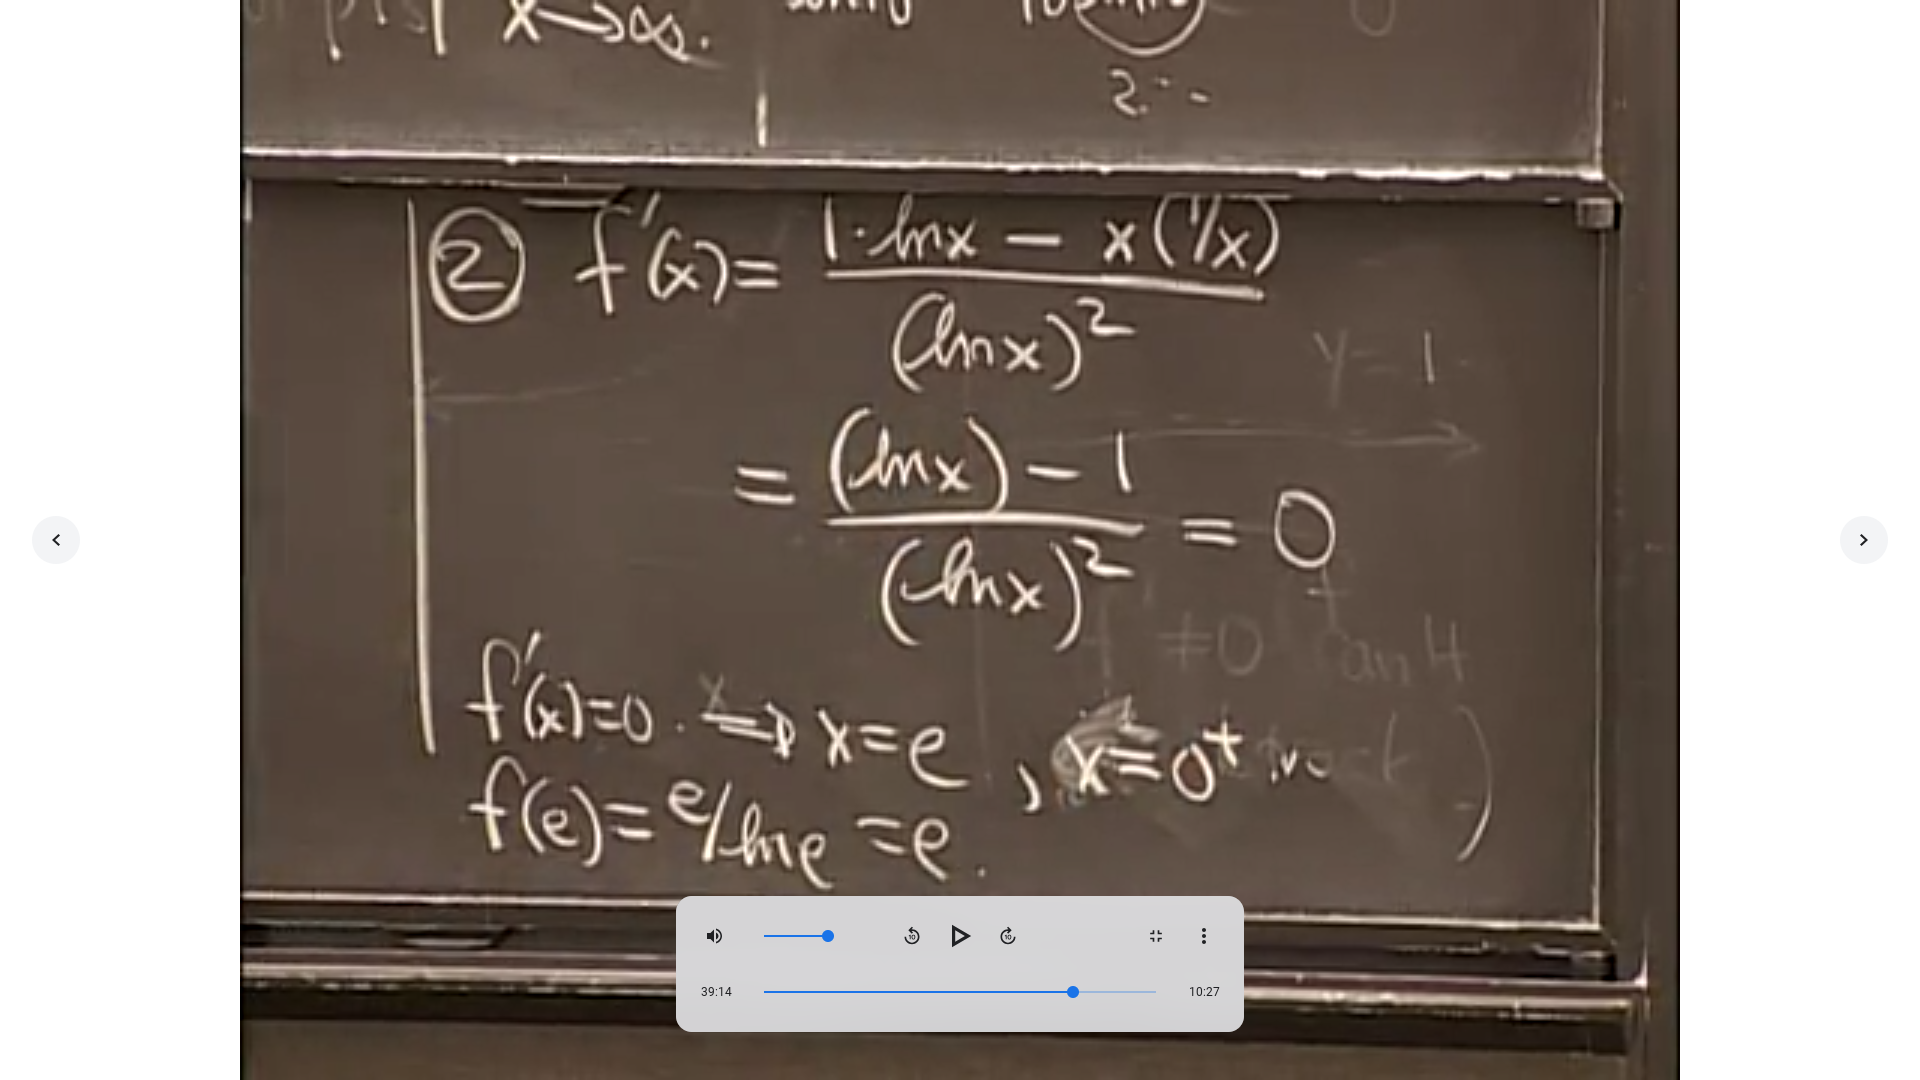 x→∞.
2.--
② f'(x)= 1·lnx − x(1/x)
(lnx)²
y=1
= (lnx)−1 = 0
(lnx)²
f'≠0
f'(x)=0 ⇒ x=e , x=0⁺
f(e)= e/lne =e.
10 10
39:14 10:27